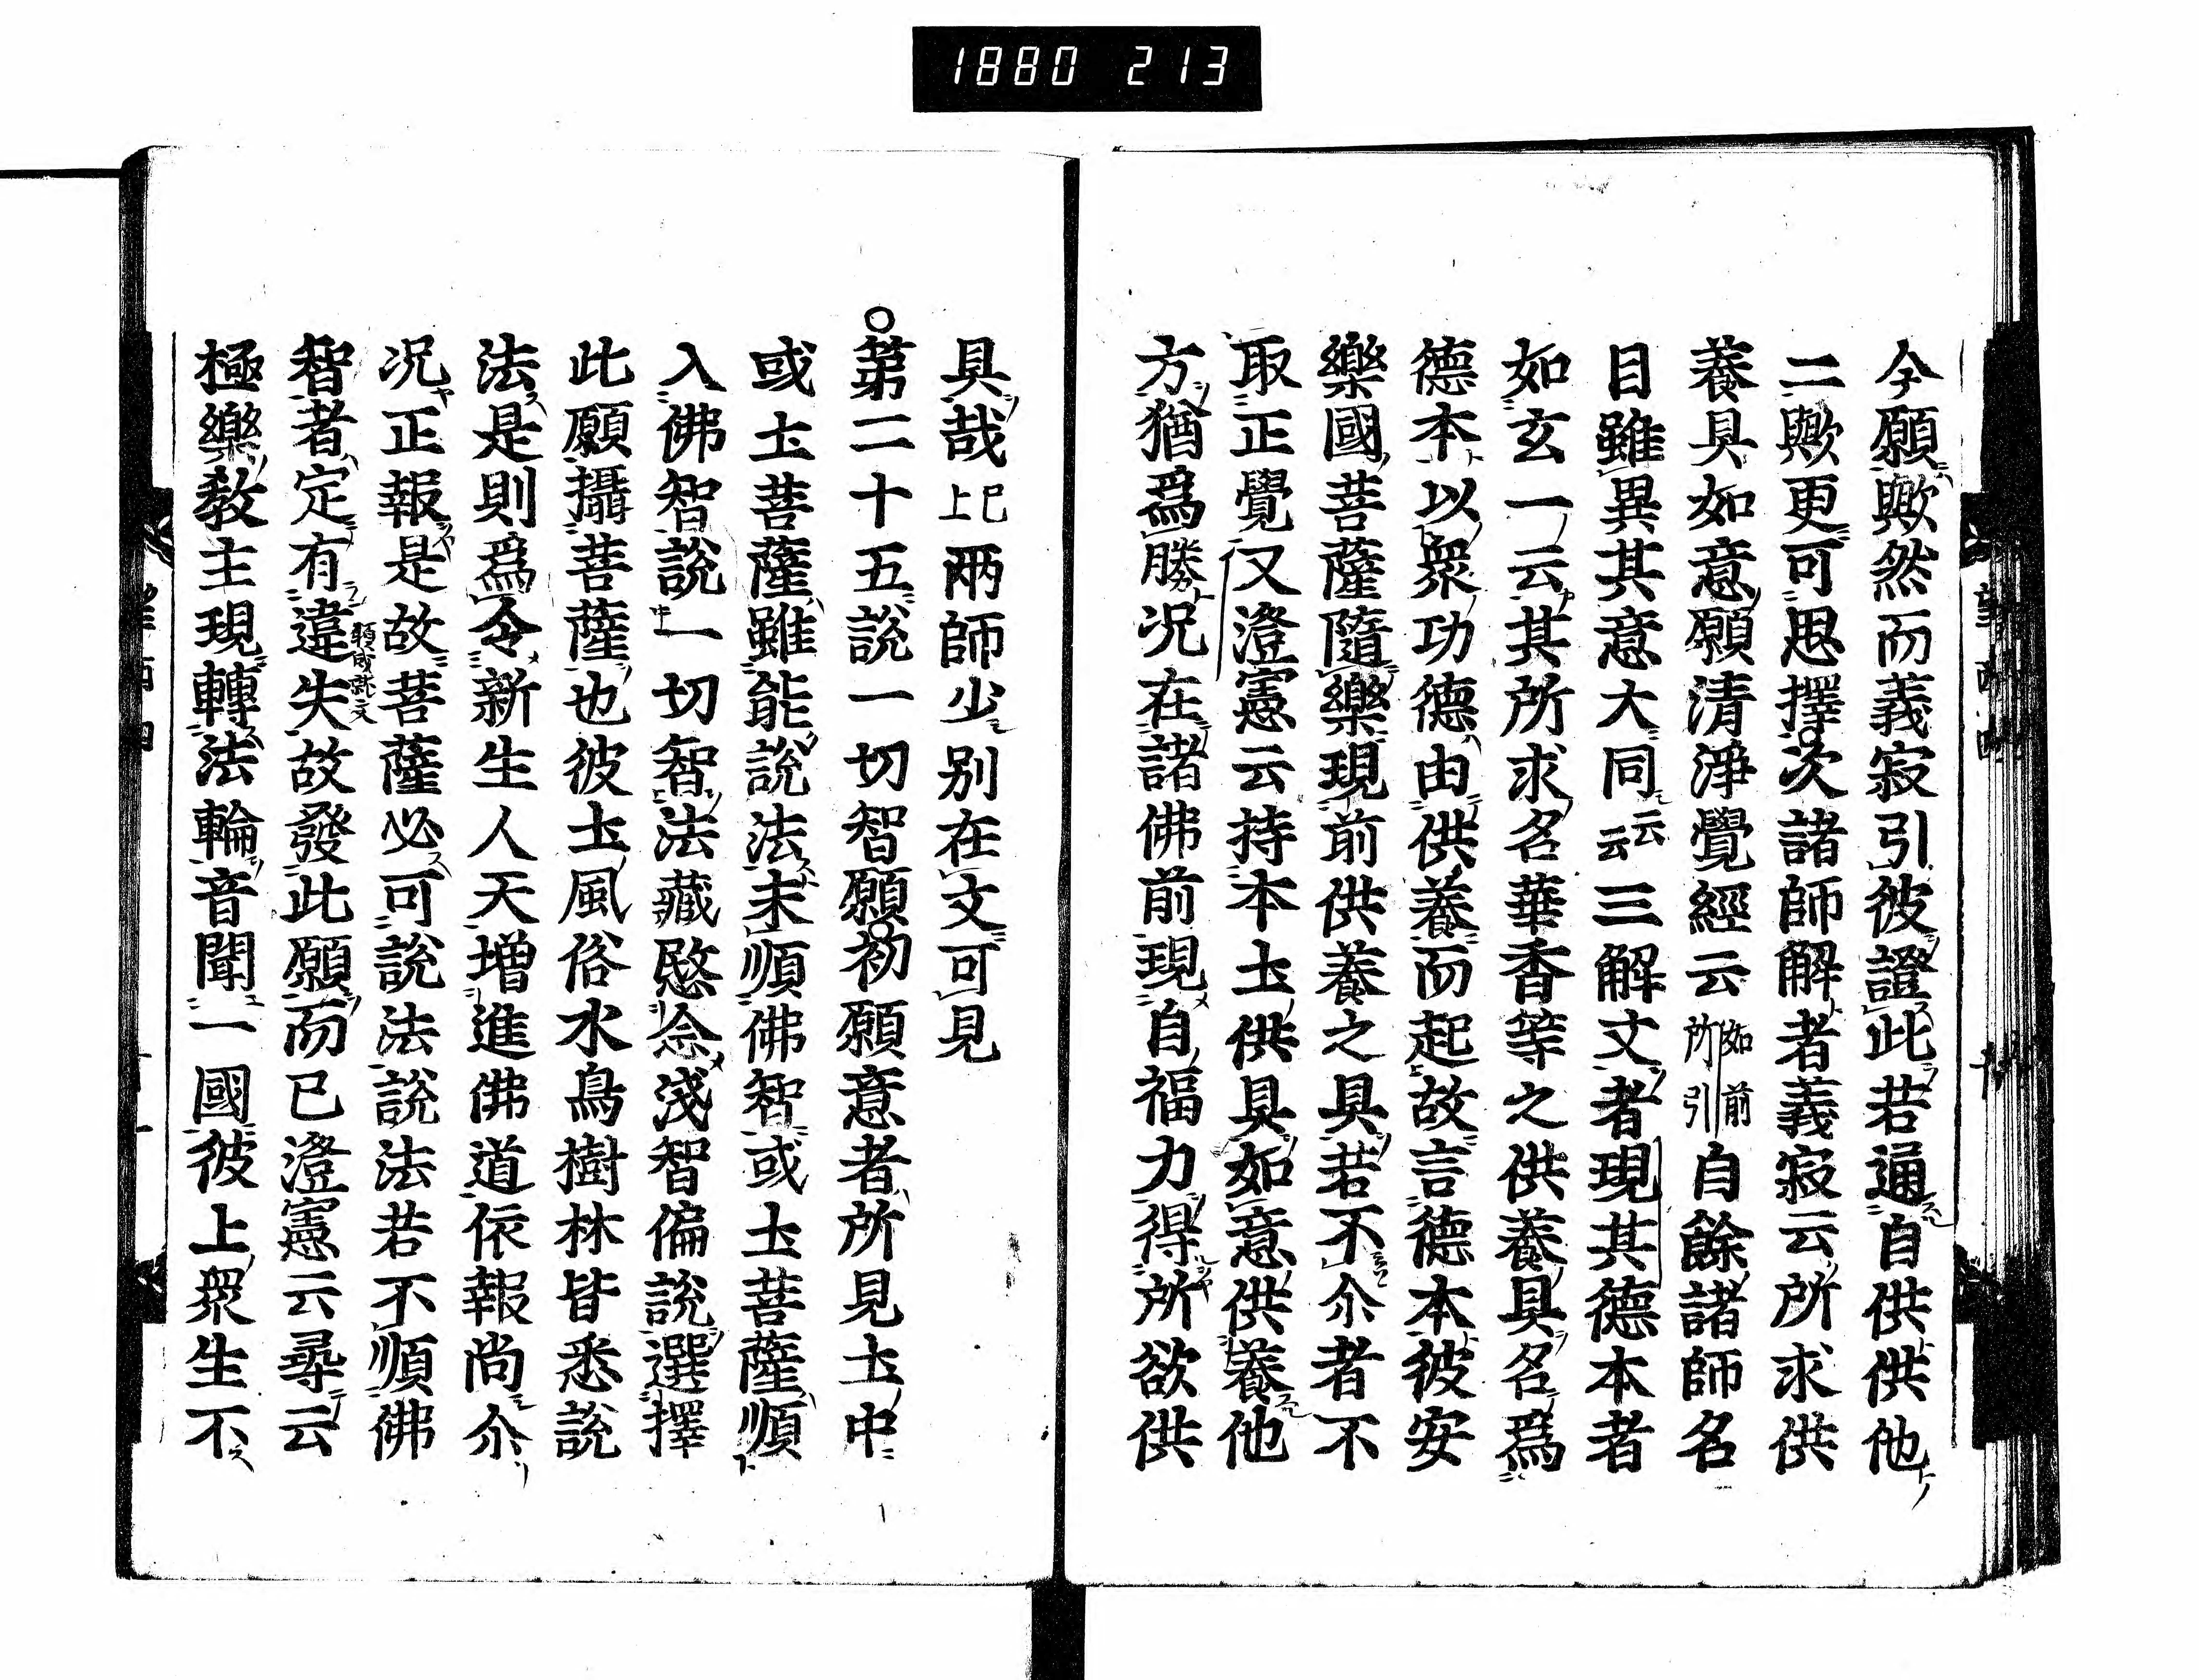 1880 213
今願歟然而義寂引彼證此若通自供供他
二歟更可思擇次諸師解者義寂云所求供
養具如意願清淨覺經云如前所引自餘諸師名
目雖異其意大同云云三解文者現其德本者
如玄一云其所求名華香等之供養具名爲
德本以衆功德由供養而起故言德本彼安
樂國菩薩隨樂現前供養之具若不尒者不
取正覺又澄憲云持本土供具如意供養他
方猶爲勝況在諸佛前現自福力得所欲供
具哉已上兩師少別在文可見
第二十五說一切智願初願意者所見土中
或土菩薩雖能說法未順佛智或土菩薩順
入佛智說一切智法藏愍念淺智偏說選擇
此願攝菩薩也彼土風俗水鳥樹林皆悉說
法是則爲令新生人天增進佛道依報尚尒
況正報是故菩薩必可說法說法若不順佛
智者定有違失故發此願而已澄憲云尋云
極樂敎主現轉法輪音聞一國彼上衆生不